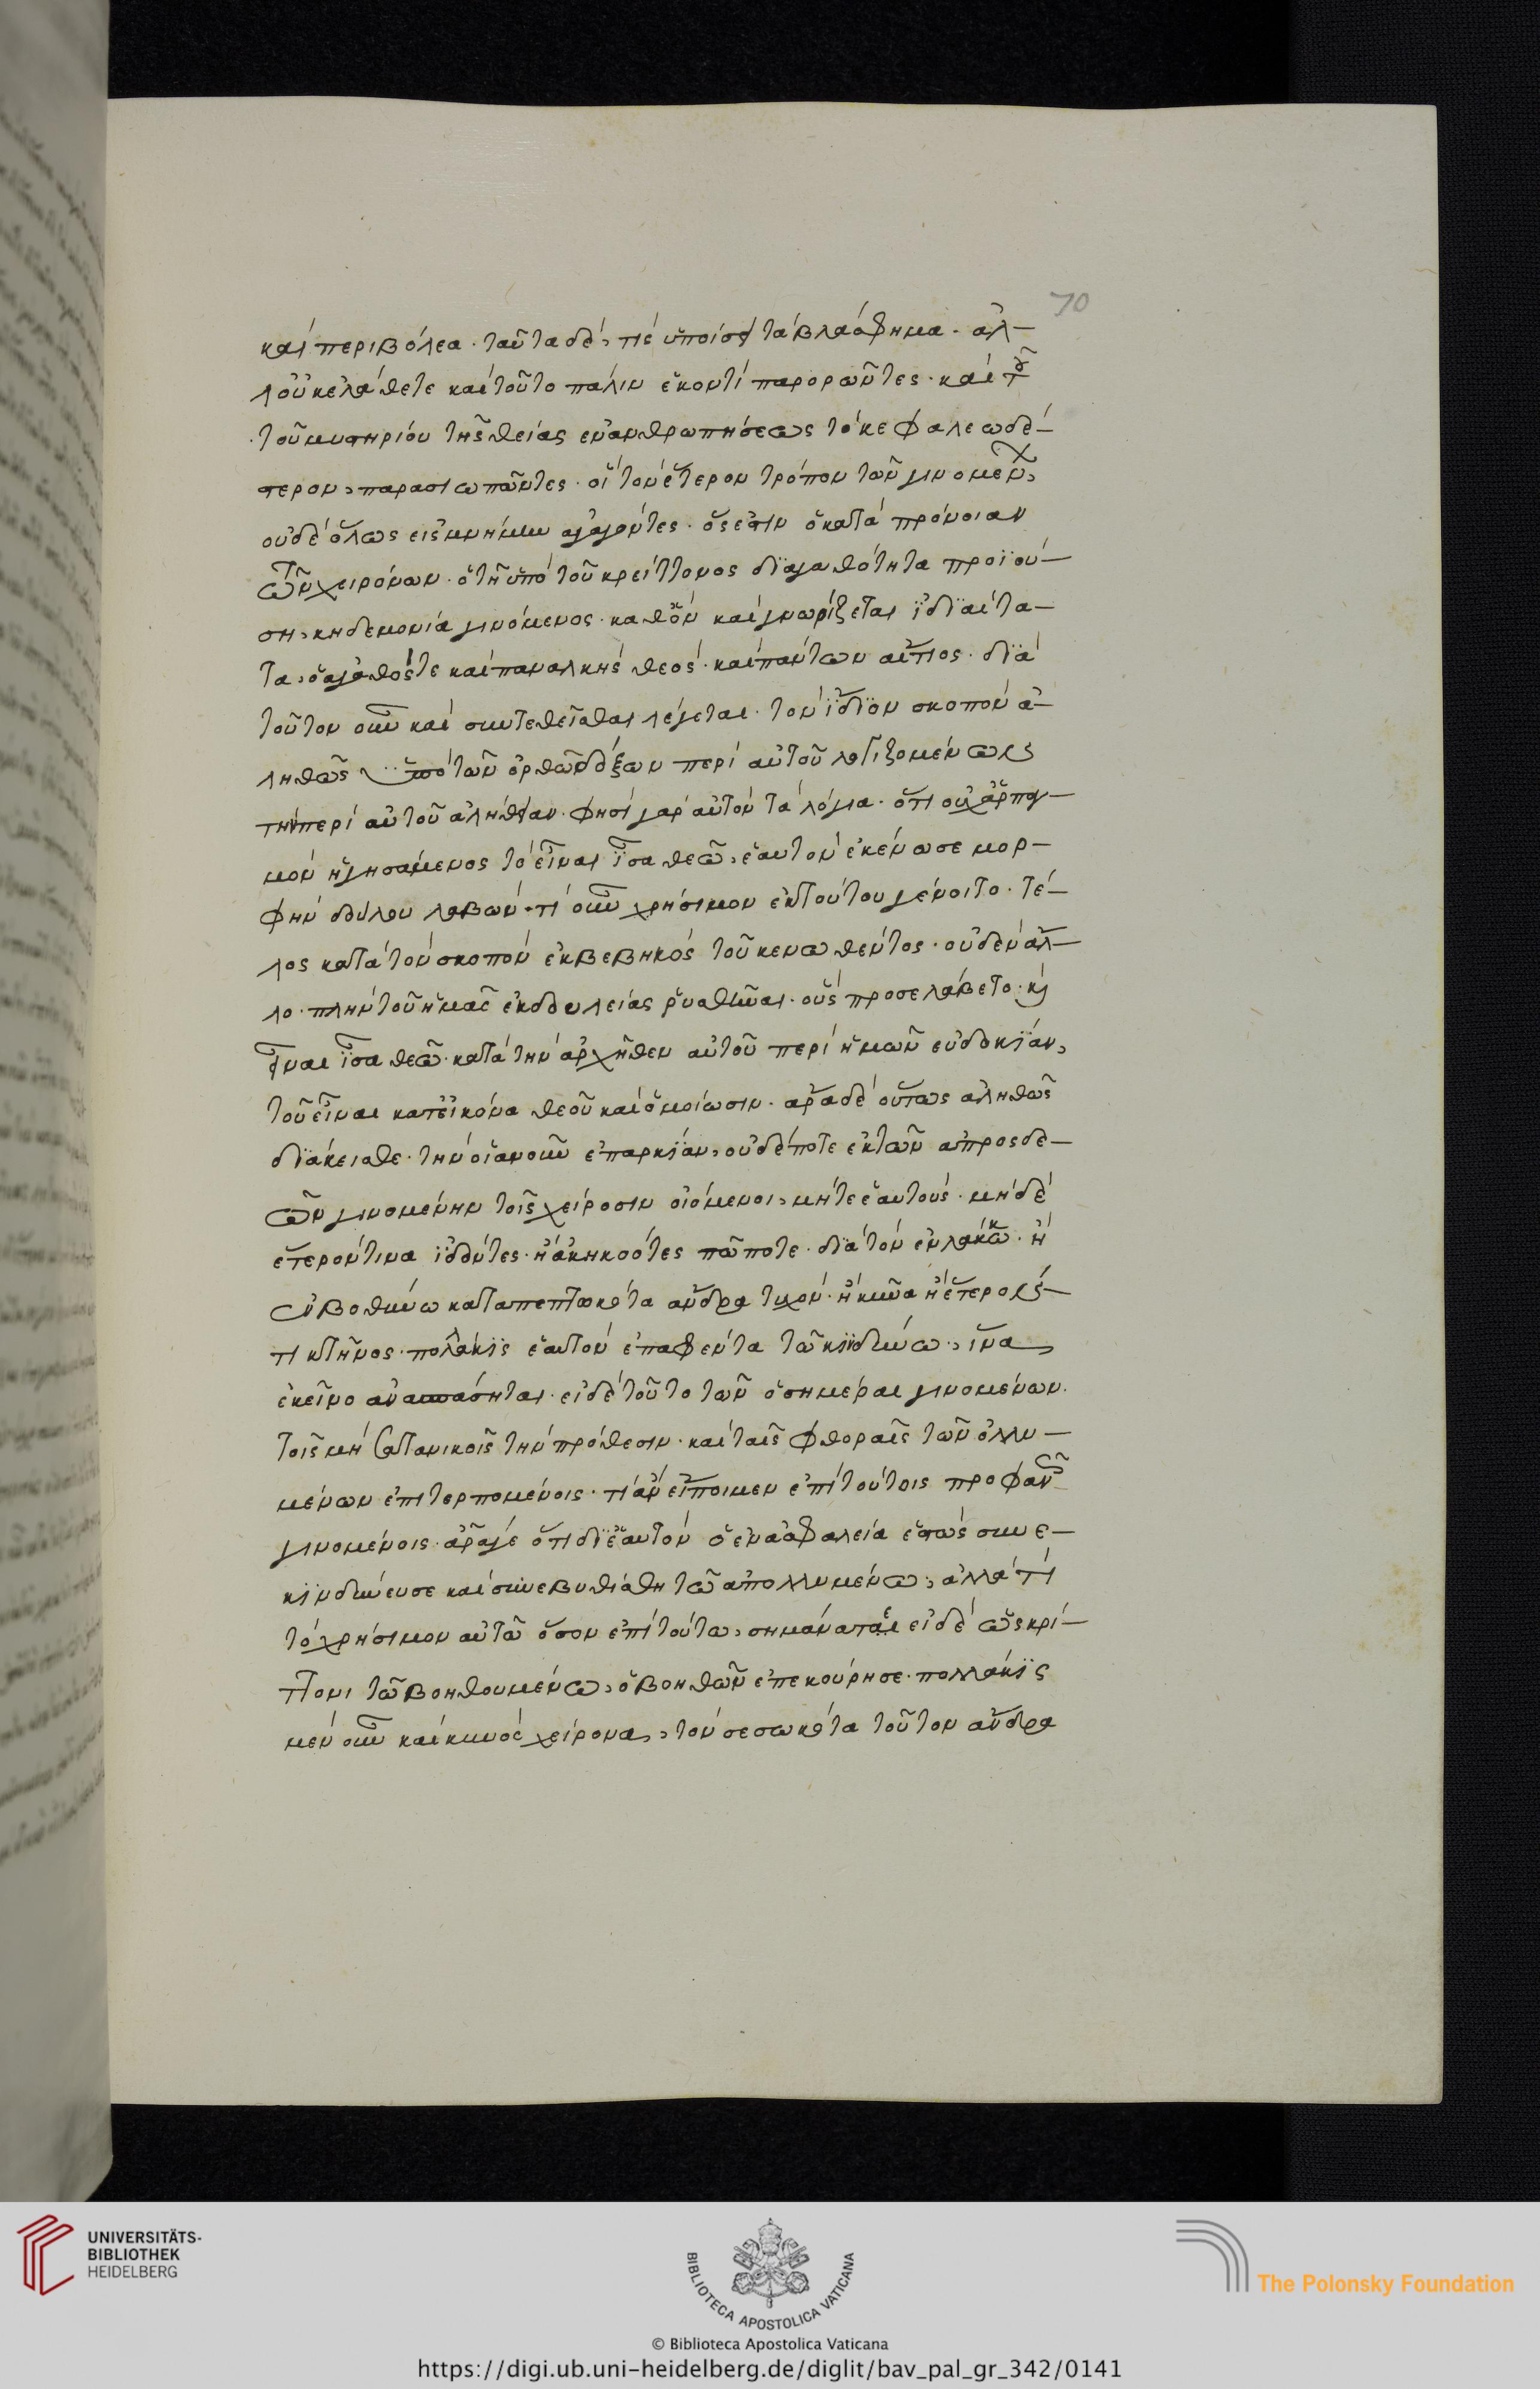 70
καὶ περιβόλεα· ταῦτα δὲ, τὶ ἕποισθ τὰ βλάσφημα· ἀλ-
λ' οὐκ ἐλάθετε καὶ τοῦτο πάλιν ἑκοντὶ παρορῶντες· καὶ
τοῦ μυστηρίου τῆς θείας ἐνανθρωπήσεως τὸ κεφαλεωδέ-
στερον, παρασιωπῶντες· οἳ τὸν ἕτερον τρόπον τῶν γινομένων,
οὐδ' ὅλως εἰς μνήμην ἀγαγόντες· ὅς ἐστιν ὁ κατὰ πρόνοιαν
τῶν χειρόνων· ὁ τῇ ὑπὸ τοῦ κρείττονος δι' ἀγαθότητα προϊού-
ση, κηδεμονία γινόμενος· καθ' ὃν καὶ γνωρίζεται ἰδιαίτα-
τα, ὁ ἀγαθός τε καὶ παναλκὴς θεός· καὶ πάντων αἴτιος· διὰ
τοῦτον οὖν καὶ συντεθεῖσθαι λέγεται· τὸν ἴδιον σκοπὸν ἀ-
ληθῶς ὑπὸ τῶν ὀρθῶν δόξων περὶ αὐτοῦ λογιζομένων
τὴν περὶ αὐτοῦ ἀλήθειαν· φησὶ γὰρ αὐτὸν τὰ λόγια· ὅτι οὐχ ἁρπαγ-
μὸν ἡγησάμενος τὸ εἶναι ἴσα θεῶ, ἑαυτὸν ἐκένωσε μορ-
φὴν δούλου λαβών· τί οὖν χρήσιμον ἐκ τούτου γένοιτο· τέ-
λος κατὰ τὸν σκοπὸν ἐκβεβηκὸς τοῦ κενωθέντος· οὐδὲν ἄλ-
λο· πλὴν τοῦ ἡμᾶς ἐκ δουλείας ῥυσθῆναι· οὓς προσελάβετο· κ
εἶναι ἴσα θεῶ· κατὰ τὴν ἀρχῆθεν αὐτοῦ περὶ ἡμῶν εὐδοκίαν,
τοῦ εἶναι κατ' εἰκόνα θεοῦ καὶ ὁμοίωσιν· ἆρα δὲ οὕτως ἀληθῶς
διάκεισθε· τὴν οἵαν οὖν ἐπαρκίαν, οὐδέποτε ἐκ τῶν ἀπροσδε-
ῶν γινομένην τοῖς χείροσιν οἰόμενοι, μήτε ἑαυτοὺς· μηδὲ
ἕτερόν τινα ἰδόντες· ἢ ἀκηκοότες πώποτε· διὰ τὸν ἐν λάκκω· ἢ
ἐν βοθύνω καταπεπτωκότα ἄνδρα τυχὸν· ἢ κύνα ἢ ἕτερόν
τι κτῆνος· πολλάκις ἑαυτὸν ἐπαφέντα τῶ κινδύνω, ἵνα
ἐκεῖνο ἀνασπάσηται· εἰ δὲ τοῦτο τῶν ὁσημέραι γινομένων·
τοῖς μὴ σατανικοῖς τὴν πρόθεσιν· καὶ ταῖς φθοραῖς τῶν ὀλλυ-
μένων ἐπιτερπομένοις· τί ἂν εἴποιμεν ἐπὶ τούτοις προφανῶς
γινομένοις· ἆρά γε ὅτι δι' ἑαυτὸν ὁ ἐν ἀσφαλεία ἑστὼς συνε-
κινδύνευσε καὶ συνεβυθίσθη τῶ ἀπολλυμένω, ἀλλὰ τί
τὸ χρήσιμον αὐτῶ ὅσον ἐπὶ τούτω, σημάνατε εἰ δὲ ὡς κρί-
ττονι τῶ βοηθουμένω, ὁ βοηθῶν ἐπεκούρησε· πολλάκις
μὲν οὖν καὶ κυνὸς χείρονα, τὸν σεσωκότα τοῦτον ἄνδρα
UNIVERSITÄTS-
BIBLIOTHEK
HEIDELBERG
BIBLIOTECA APOSTOLICA VATICANA
The Polonsky Foundation
© Biblioteca Apostolica Vaticana
https://digi.ub.uni-heidelberg.de/diglit/bav_pal_gr_342/0141